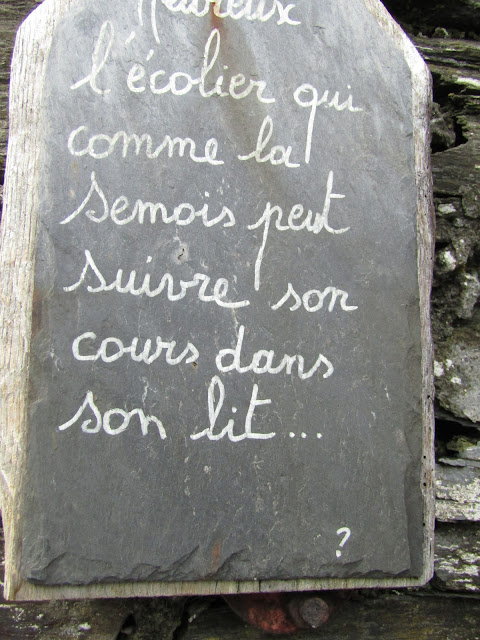 Heureux
l'écolier qui
comme la
Semois peut
suivre son
cours dans
son lit...
?